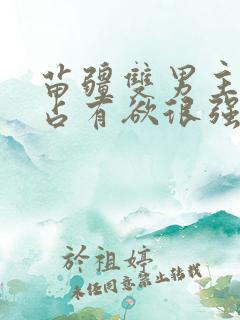 苗疆雙男主
占有欲很强
於祖婷
未经同意禁止转载